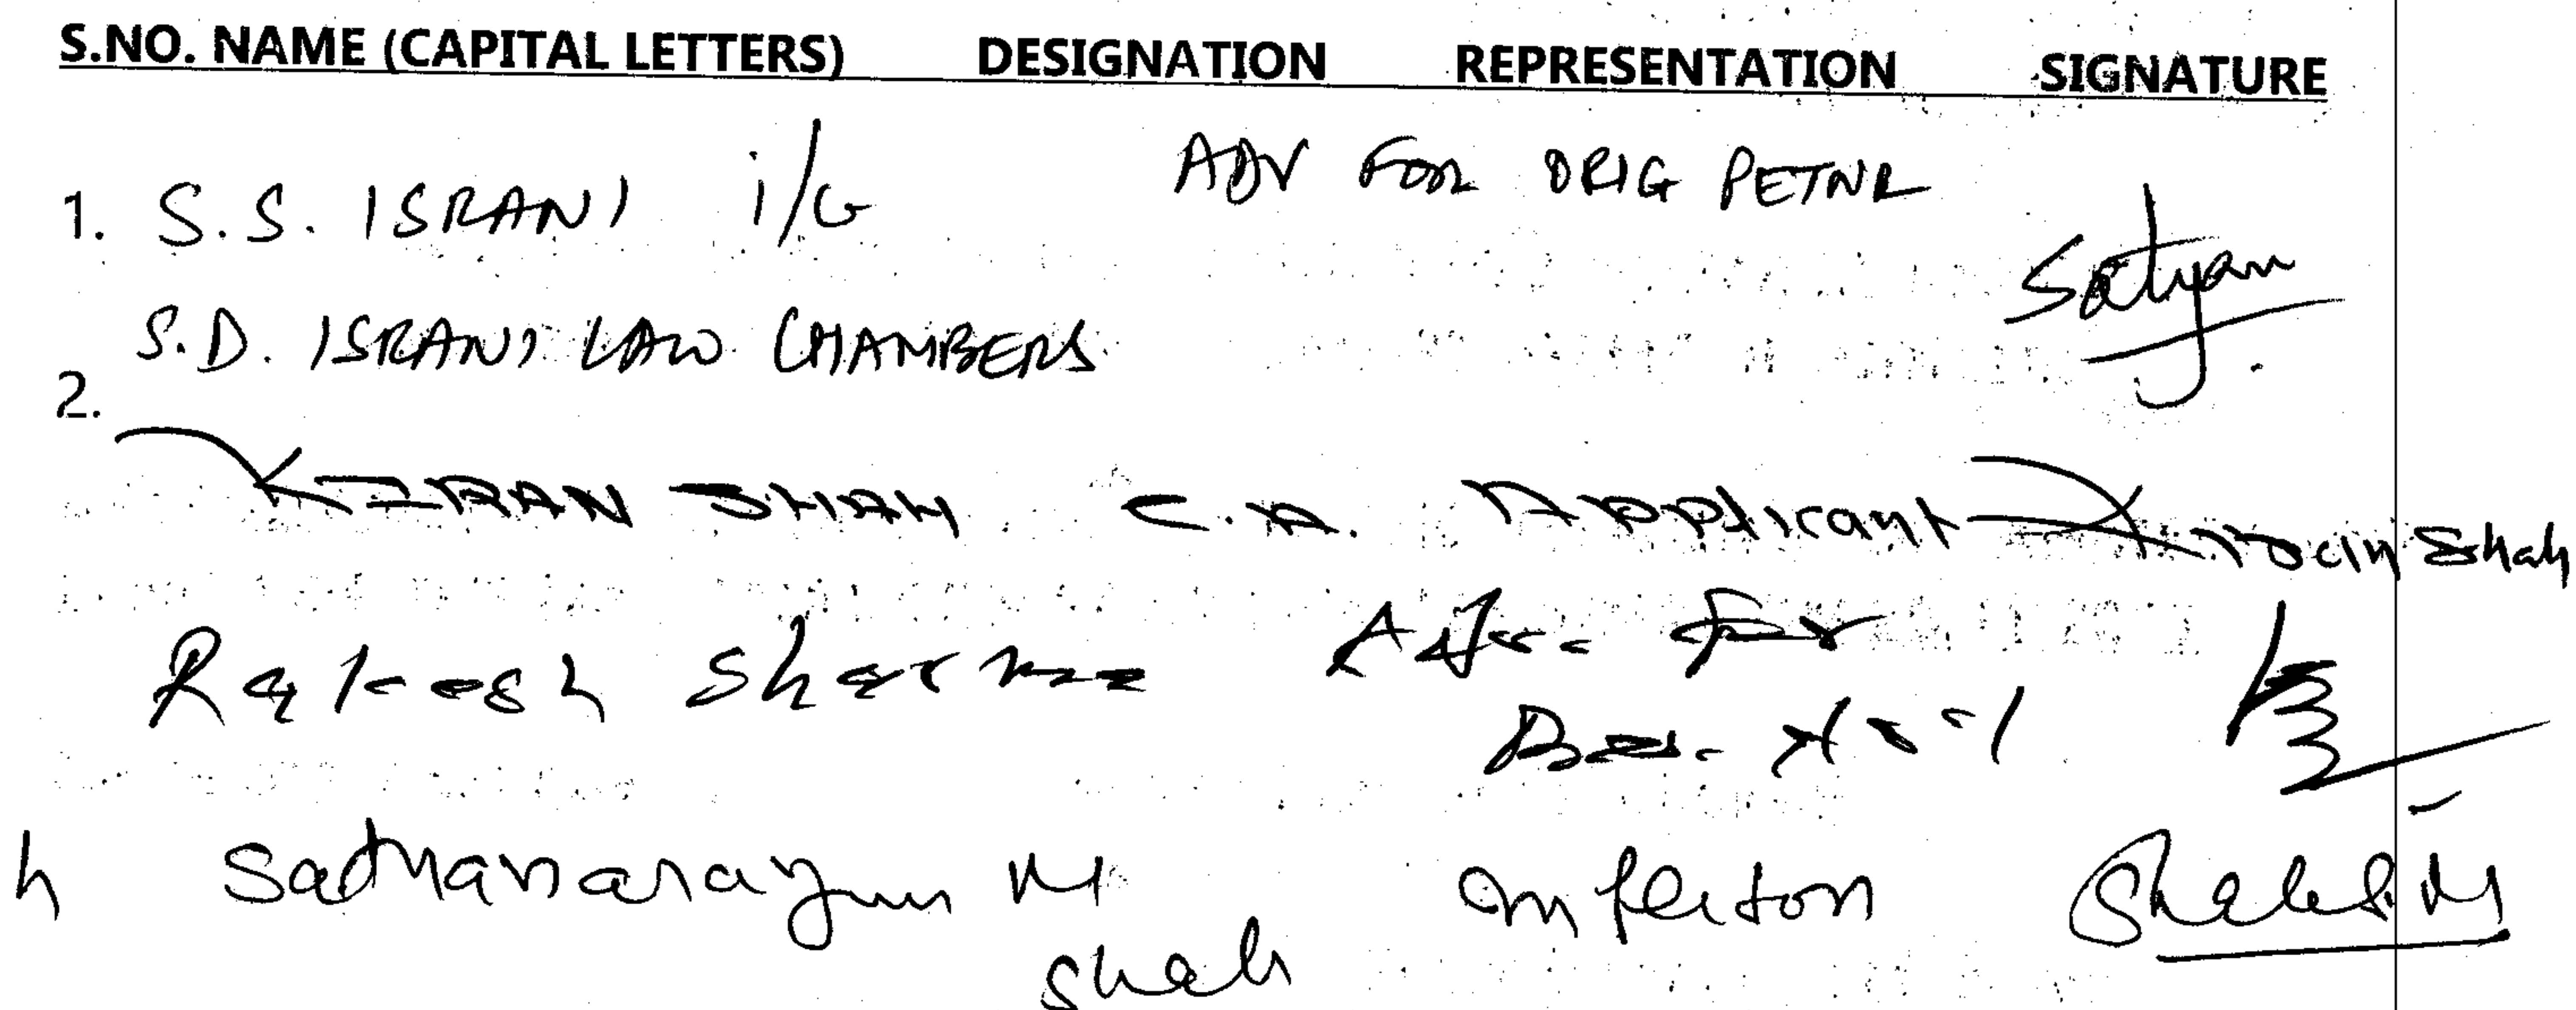 S.NO. NAME (CAPITAL LETTERS) DESIGNATION REPRESENTATION SIGNATURE
1. S.S. ISRANI i/G ADV FOR ORIG PETNR
Satyan
S.D. ISRANI LAW CHAMBERS
2.
KIRAN SHAH C.A. Applicant Kiran Shah
Rakesh Sharma Adv. for
Satyanarayan M
Shah